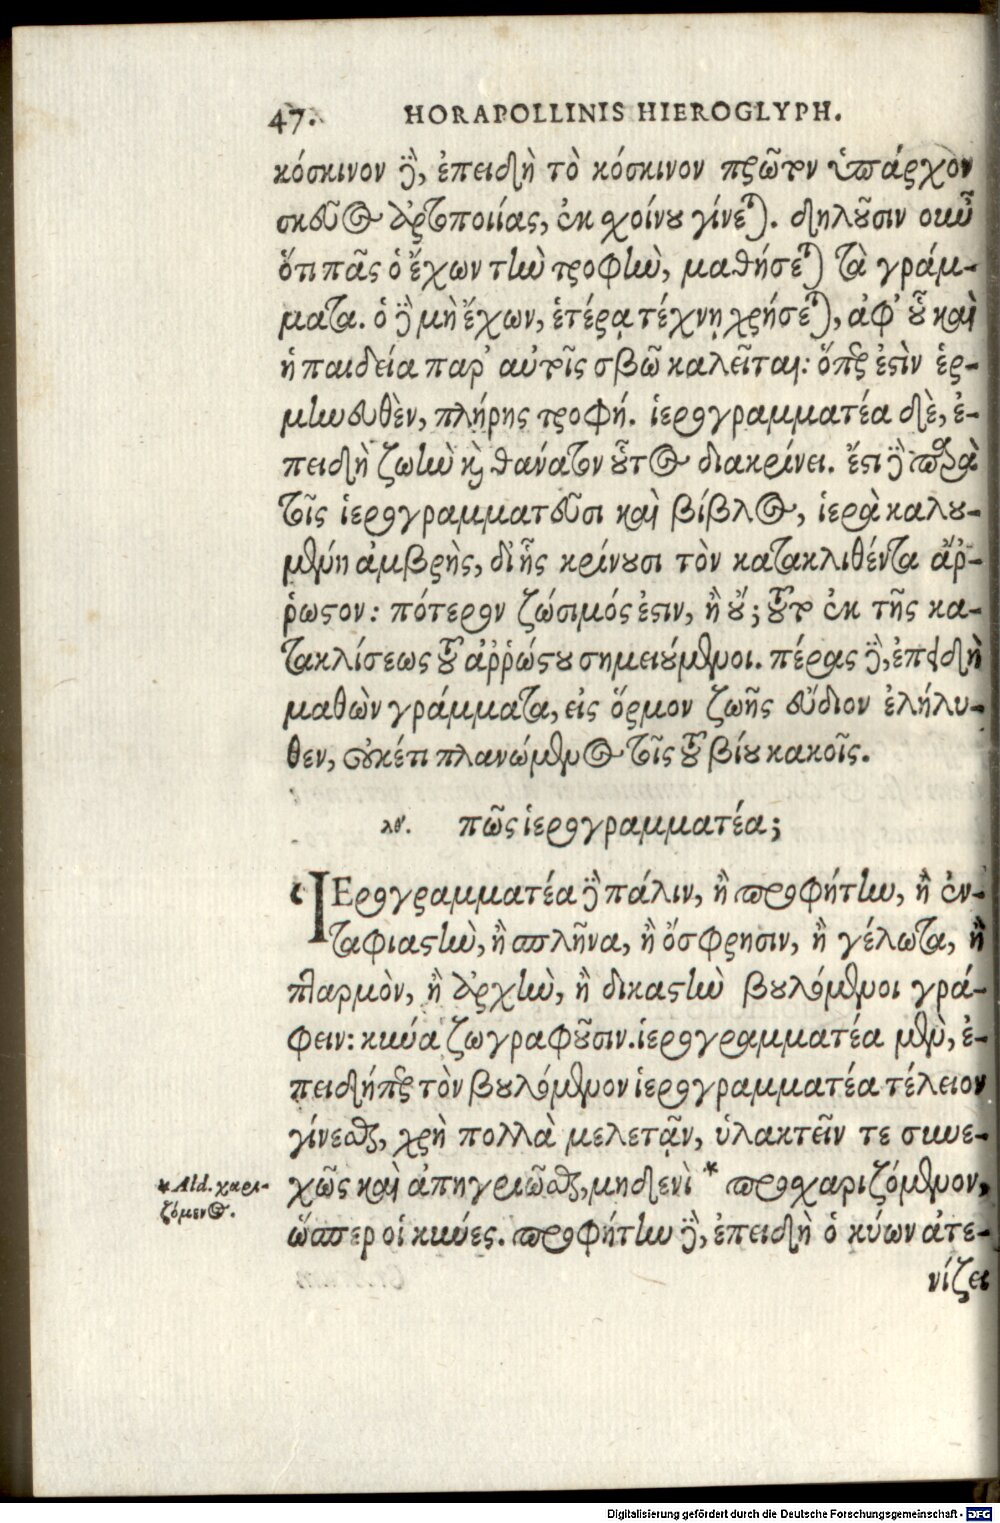 47. HORAPOLLINIS HIEROGLYPH.
κόσκινον δὲ, ἐπειδὴ τὸ κόσκινον πρῶτον ὑπάρχον
σκεῦος ἀρτοποιίας, ἐκ σχοίνου γίνεται. δηλοῦσιν οὖν
ὅτι πᾶς ὁ ἔχων τὴν τροφὴν, μαθήσεται τὰ γράμ-
ματα. ὁ δὲ μὴ ἔχων, ἑτέρᾳ τέχνῃ χρήσεται, ἀφ' οὗ καὶ
ἡ παιδεία παρ' αὐτοῖς σβῶ καλεῖται: ὅπερ ἐστὶν ἑρ-
μηνευθὲν, πλήρης τροφή. ἱερογραμματέα δὲ, ἐ-
πειδὴ ζωὴν καὶ θάνατον οὗτος διακρίνει. ἔστι δὲ παρὰ
τοῖς ἱερογραμματεῦσι καὶ βίβλος, ἱερὰ καλου-
μένη ἀμβρὴς, δι' ἧς κρίνουσι τὸν κατακλιθέντα ἄῤ-
ῥωστον: πότερον ζώσιμός ἐστιν, ἢ οὔ; τοῦτο ἐκ τῆς κα-
τακλίσεως τοῦ ἀῤῥώστου σημειούμενοι. πέρας δὲ, ἐπειδὴ
μαθὼν γράμματα, εἰς ὅρμον ζωῆς εὔδιον ἐλήλυ-
θεν, οὐκέτι πλανώμενος τοῖς τοῦ βίου κακοῖς.
λθ'. πῶς ἱερογραμματέα;
ἹΕρογραμματέα δὲ πάλιν, ἢ προφήτην, ἢ ἐν-
ταφιαστὴν, ἢ σπλῆνα, ἢ ὄσφρησιν, ἢ γέλωτα, ἢ
πταρμὸν, ἢ ἀρχὴν, ἢ δικαστὴν βουλόμενοι γρά-
φειν: κύνα ζωγραφοῦσιν. ἱερογραμματέα μὲν, ἐ-
πειδήπερ τὸν βουλόμενον ἱερογραμματέα τέλειον
γίνεσθαι, χρὴ πολλὰ μελετᾷν, ὑλακτεῖν τε συνε-
χῶς καὶ ἀπηγριῶσθαι, μηδενὶ * προχαριζόμενον,
ὥσπερ οἱ κύνες. προφήτην δὲ, ἐπειδὴ ὁ κύων ἀτε-
νίζει
* Ald. χαρι-
ζόμενος.
Digitalisierung gefördert durch die Deutsche Forschungsgemeinschaft - DFG